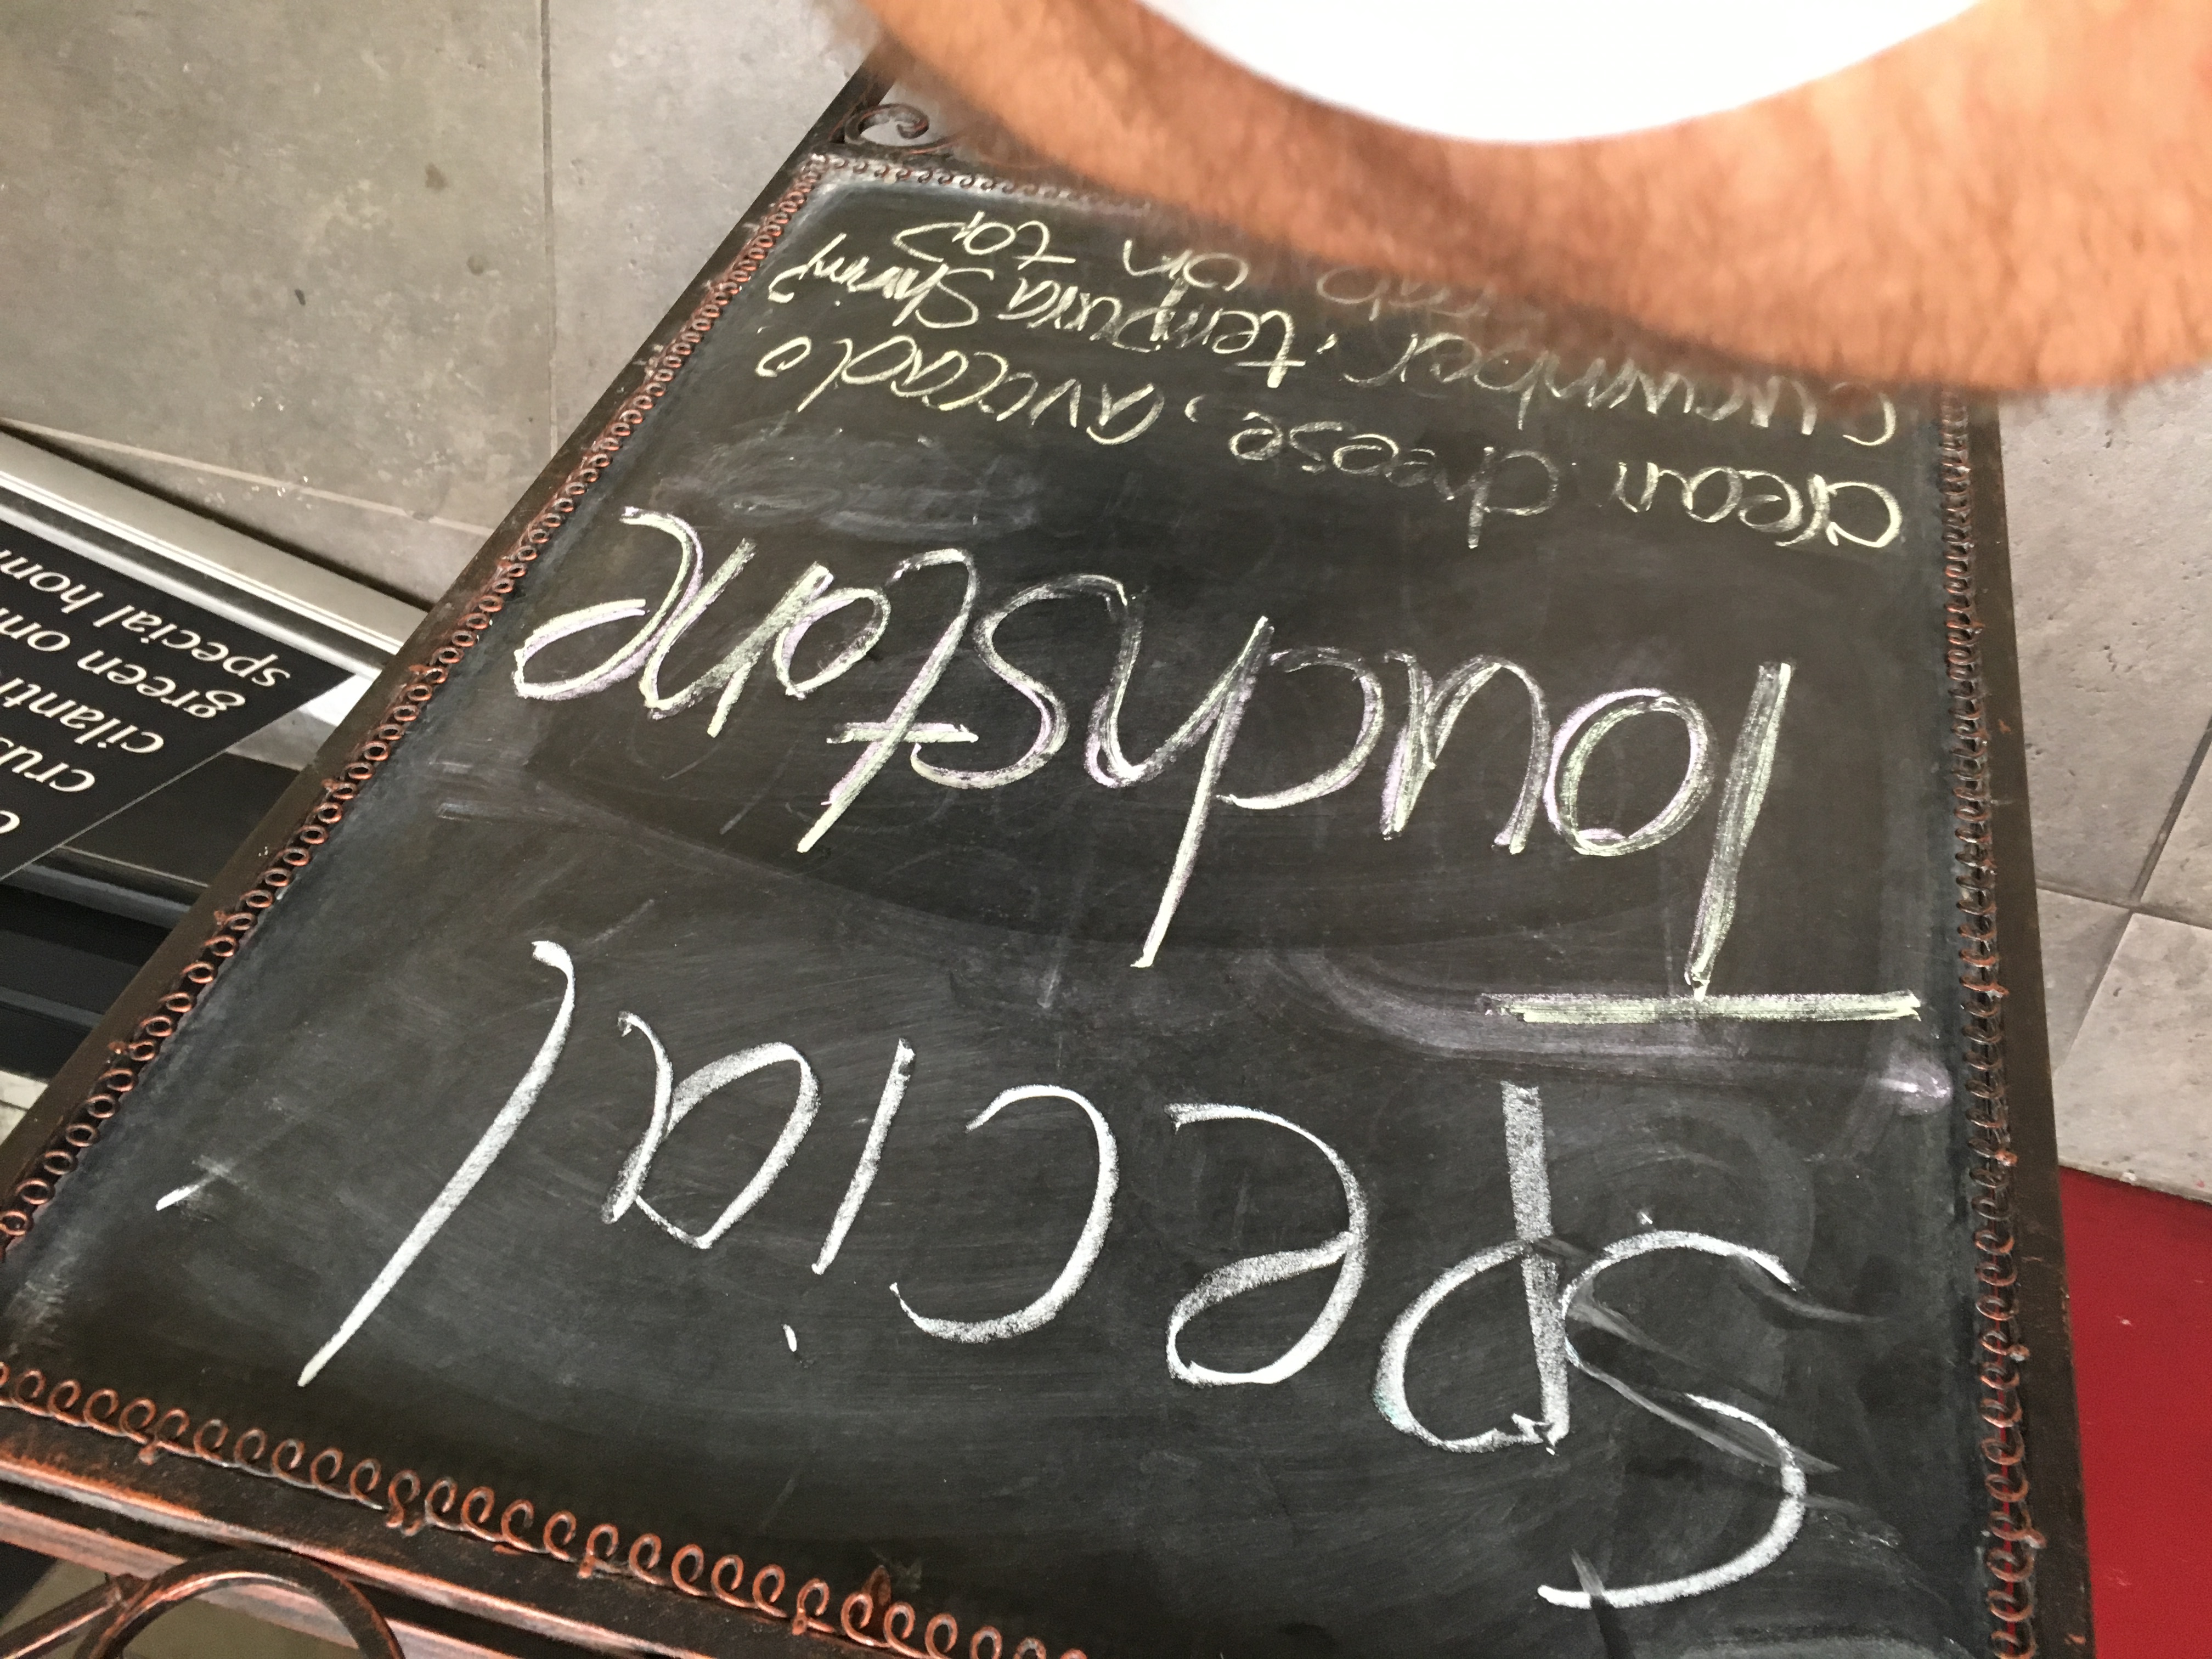 Special
Touchstone
cream cheese, avocado
cucumber, tempura Shrimp
on top
cilant
green
special